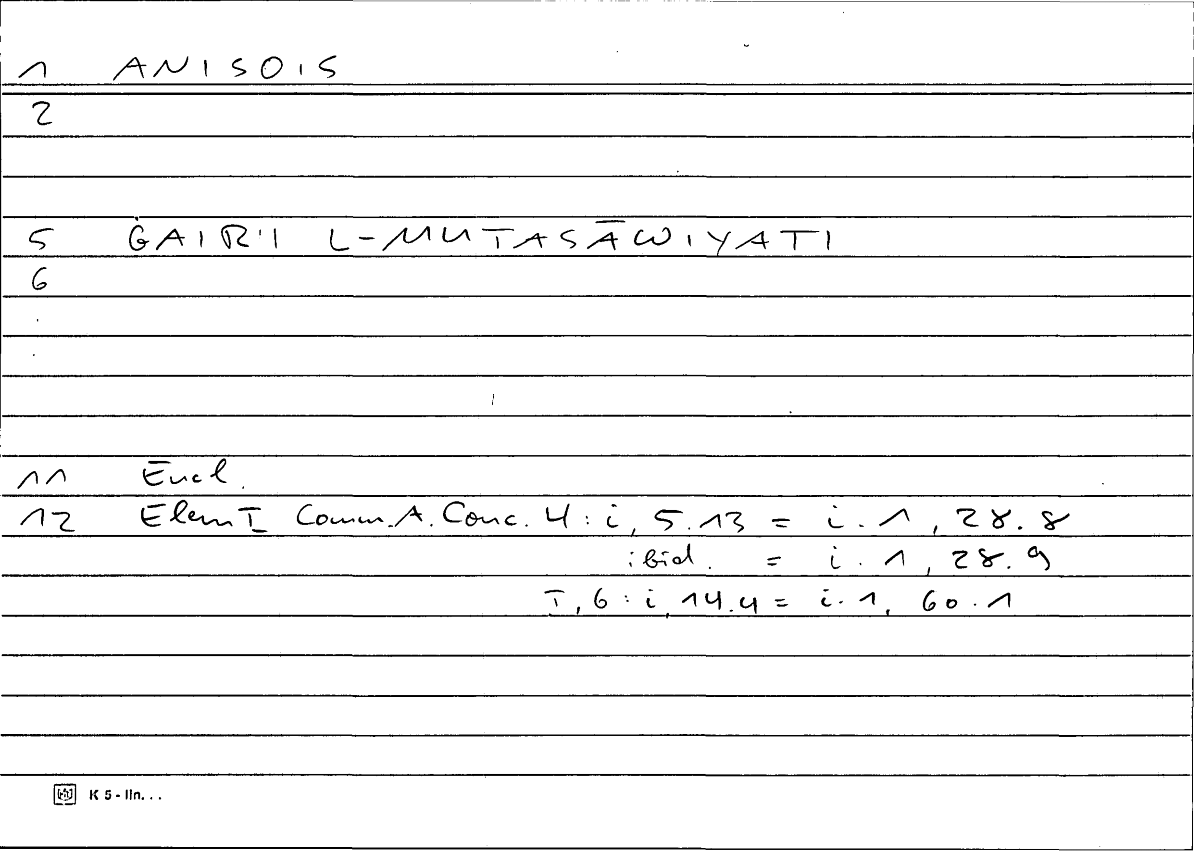 1 ANISOIS
2
5 ĠAIR'I L-MUTASĀWIYATI
6
11 Eucl.
12 Elem I Comm. A. Conc. 4: i, 5.13 = i.1, 28.8
ibid. = i.1, 28.9
I, 6: i, 14.4 = i.1, 60.1
K 5 - lin. . .